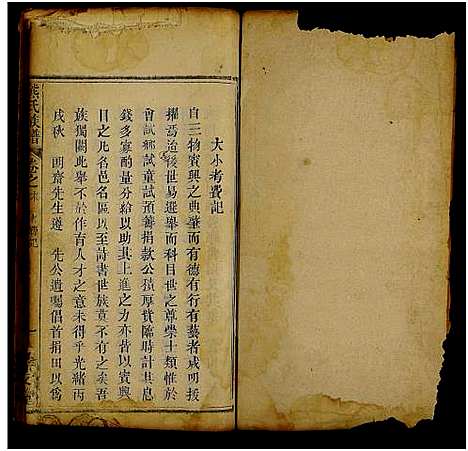 大小考費記
自三物賓興之典肇而有德有行有藝者咸明揚
擢焉治後世易選舉而科目世之尊榮士類惟於
會試鄉試童試預籌捐款公積厚貲臨時計其息
錢多寡酌量分給以助其上進之力亦昔以賓興
目之凡名邑名區以至詩書世族莫不有之矣吾
族獨闕此舉不於作育人才之意未得乎光緒丙
戌秋 明齋先生遵 先公遺囑倡首捐田以爲
氏族譜 卷之 記 一